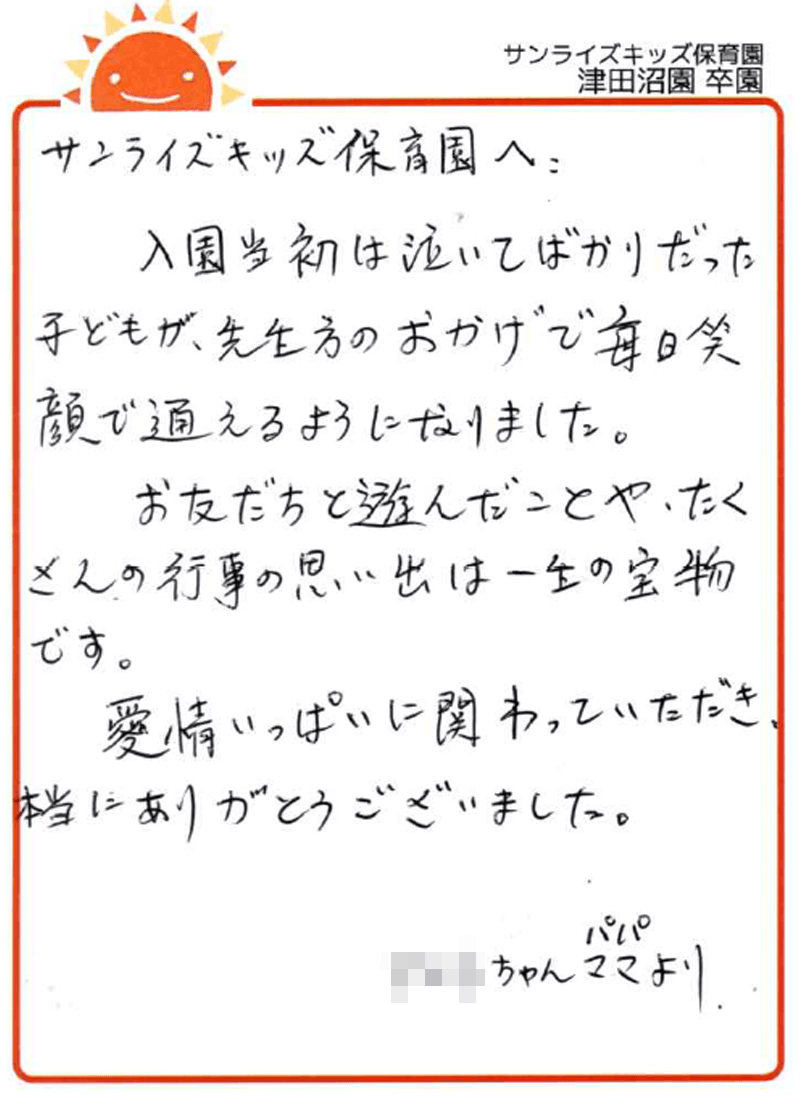 サンライズキッズ保育園
津田沼園 卒園
サンライズキッズ保育園へ:
入園当初は泣いてばかりだった
子どもが、先生方のおかげで毎日笑
顔で通えるようになりました。
お友だちと遊んだことや、たく
さんの行事の思い出は一生の宝物
です。
愛情いっぱいに関わっていただき、
本当にありがとうございました。
パパ
ちゃんママより